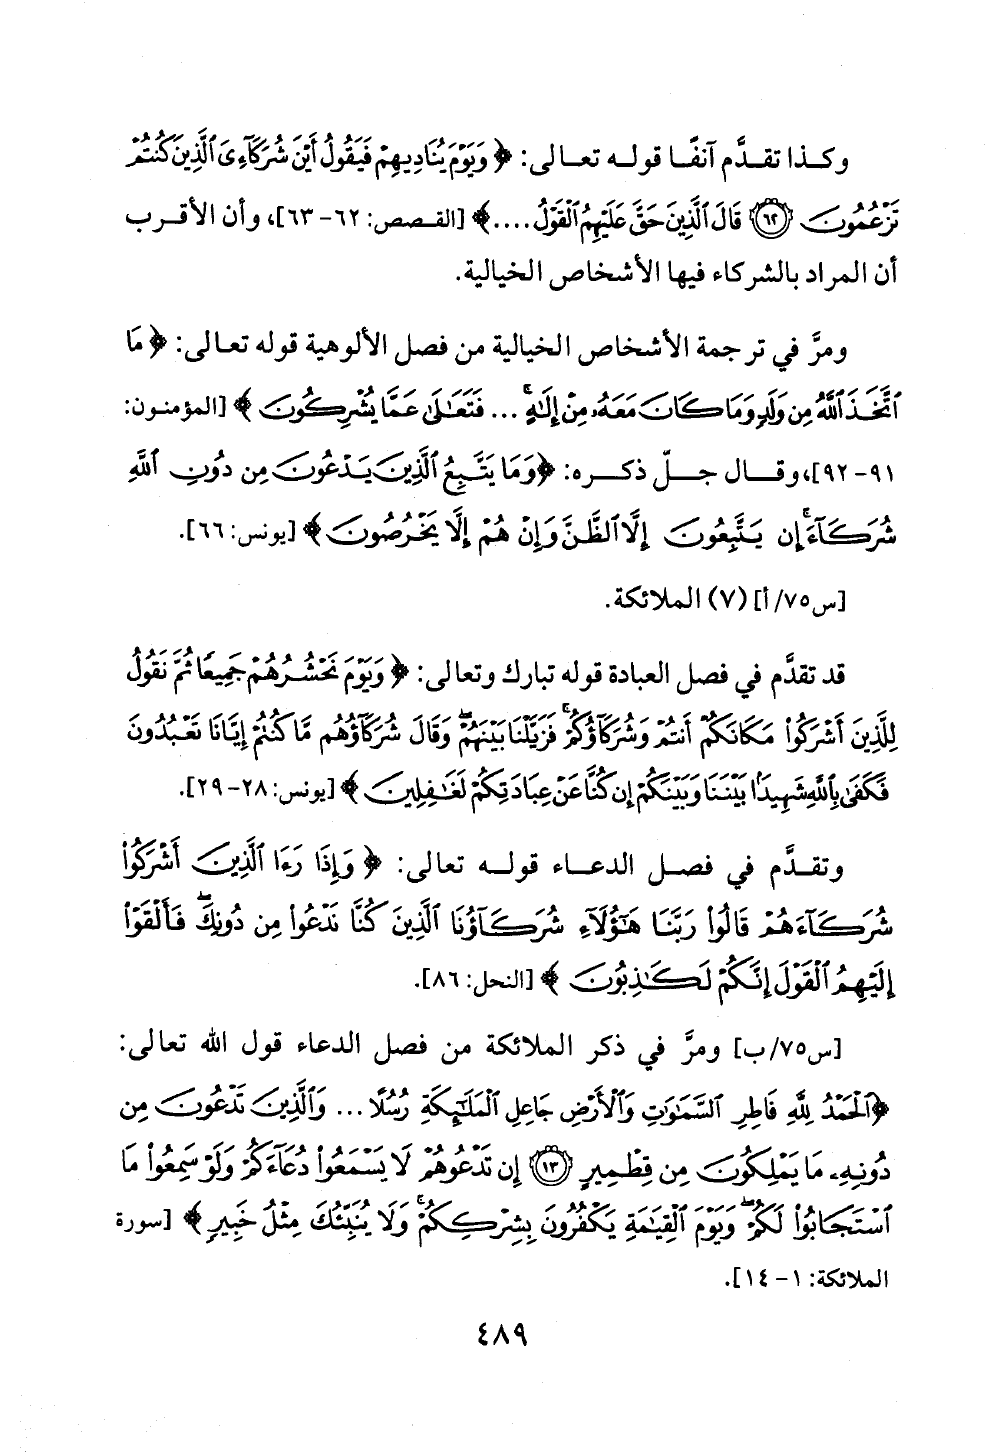 وكذا تقدَّم آنفًا قوله تعالى: ﴿ وَيَوْمَ يُنَادِيهِمْ فَيَقُولُ أَيْنَ شُرَكَآءِىَ ٱلَّذِينَ كُنتُمْ
تَزْعُمُونَ ﴿٦٢﴾ قَالَ ٱلَّذِينَ حَقَّ عَلَيْهِمُ ٱلْقَوْلُ ....﴾ [القصص: ٦٢- ٦٣]، وأن الأقرب
أن المراد بالشركاء فيها الأشخاص الخيالية.
ومرَّ في ترجمة الأشخاص الخيالية من فصل الألوهية قوله تعالى: ﴿ مَا
ٱتَّخَذَ ٱللَّهُ مِن وَلَدٍ وَمَا كَانَ مَعَهُۥ مِنْ إِلَٰهٍ ۚ ... فَتَعَٰلَىٰ عَمَّا يُشْرِكُونَ ﴾ [المؤمنون:
٩١- ٩٢]، وقال جلّ ذكره: ﴿وَمَا يَتَّبِعُ ٱلَّذِينَ يَدْعُونَ مِن دُونِ ٱللَّهِ
شُرَكَآءَ ۚ إِن يَتَّبِعُونَ إِلَّا ٱلظَّنَّ وَإِنْ هُمْ إِلَّا يَخْرُصُونَ﴾ [يونس: ٦٦].
[س٧٥/ أ] (٧) الملائكة.
قد تقدَّم في فصل العبادة قوله تبارك وتعالى: ﴿ وَيَوْمَ نَحْشُرُهُمْ جَمِيعًا ثُمَّ نَقُولُ
لِلَّذِينَ أَشْرَكُوا۟ مَكَانَكُمْ أَنتُمْ وَشُرَكَآؤُكُمْ ۚ فَزَيَّلْنَا بَيْنَهُمْ ۖ وَقَالَ شُرَكَآؤُهُم مَّا كُنتُمْ إِيَّانَا تَعْبُدُونَ
فَكَفَىٰ بِٱللَّهِ شَهِيدًۢا بَيْنَنَا وَبَيْنَكُمْ إِن كُنَّا عَنْ عِبَادَتِكُمْ لَغَٰفِلِينَ ﴾ [يونس: ٢٨- ٢٩].
وتقدَّم في فصل الدعاء قوله تعالى: ﴿ وَإِذَا رَءَا ٱلَّذِينَ أَشْرَكُوا۟
شُرَكَآءَهُمْ قَالُوا۟ رَبَّنَا هَٰٓؤُلَآءِ شُرَكَآؤُنَا ٱلَّذِينَ كُنَّا نَدْعُوا۟ مِن دُونِكَ ۖ فَأَلْقَوْا۟
إِلَيْهِمُ ٱلْقَوْلَ إِنَّكُمْ لَكَٰذِبُونَ ﴾ [النحل: ٨٦].
[س٧٥/ ب] ومرَّ في ذكر الملائكة من فصل الدعاء قول الله تعالى:
﴿ٱلْحَمْدُ لِلَّهِ فَاطِرِ ٱلسَّمَٰوَٰتِ وَٱلْأَرْضِ جَاعِلِ ٱلْمَلَٰٓئِكَةِ رُسُلًا ... وَٱلَّذِينَ تَدْعُونَ مِن
دُونِهِۦ مَا يَمْلِكُونَ مِن قِطْمِيرٍ ﴿١٣﴾ إِن تَدْعُوهُمْ لَا يَسْمَعُوا۟ دُعَآءَكُمْ وَلَوْ سَمِعُوا۟ مَا
ٱسْتَجَابُوا۟ لَكُمْ ۖ وَيَوْمَ ٱلْقِيَٰمَةِ يَكْفُرُونَ بِشِرْكِكُمْ ۚ وَلَا يُنَبِّئُكَ مِثْلُ خَبِيرٍ ﴾ [سورة
الملائكة: ١- ١٤].
٤٨٩